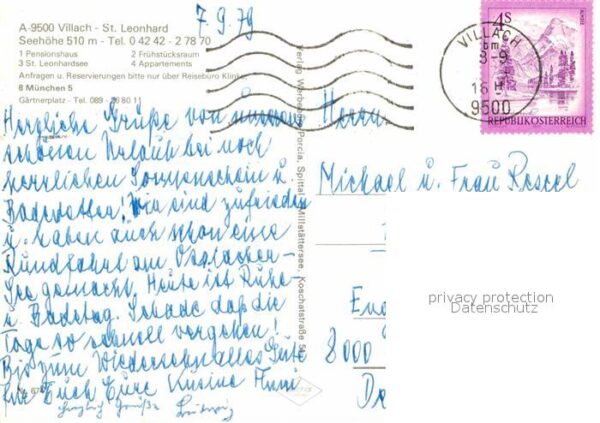 7.9.79
A-9500 Villach - St. Leonhard
Seehöhe 510 m - Tel. 0 42 42 - 2 78 70
1 Pensionshaus 2 Frühstücksraum
3 St. Leonhardsee 4 Appartements
Anfragen u. Reservierungen bitte nur über Reisebüro
8 München 5
Gärtnerplatz - Tel. 089 - 26 80 11
Herzliche Grüße von unserem
schönen Urlaub bei noch
herrlichen Sonnenschein u.
Badewetter! Wir sind zufrieden
u. haben auch schon eine
Rundfahrt am Ossiacher-
See gemacht. Heute ist Ruhe-
u. Badetag. Schade daß die
Tage so schnell vergehen!
Bis zum Wiedersehn alles Gute
für Euch Eure Kusine
Ludwig
Verlag Porcia, Spittal, Millstättersee, Koschatstraße
VILLACH
9500
4 S
REPUBLIK ÖSTERREICH
Herrn
Michael u. Frau
8000
privacy protection
Datenschutz